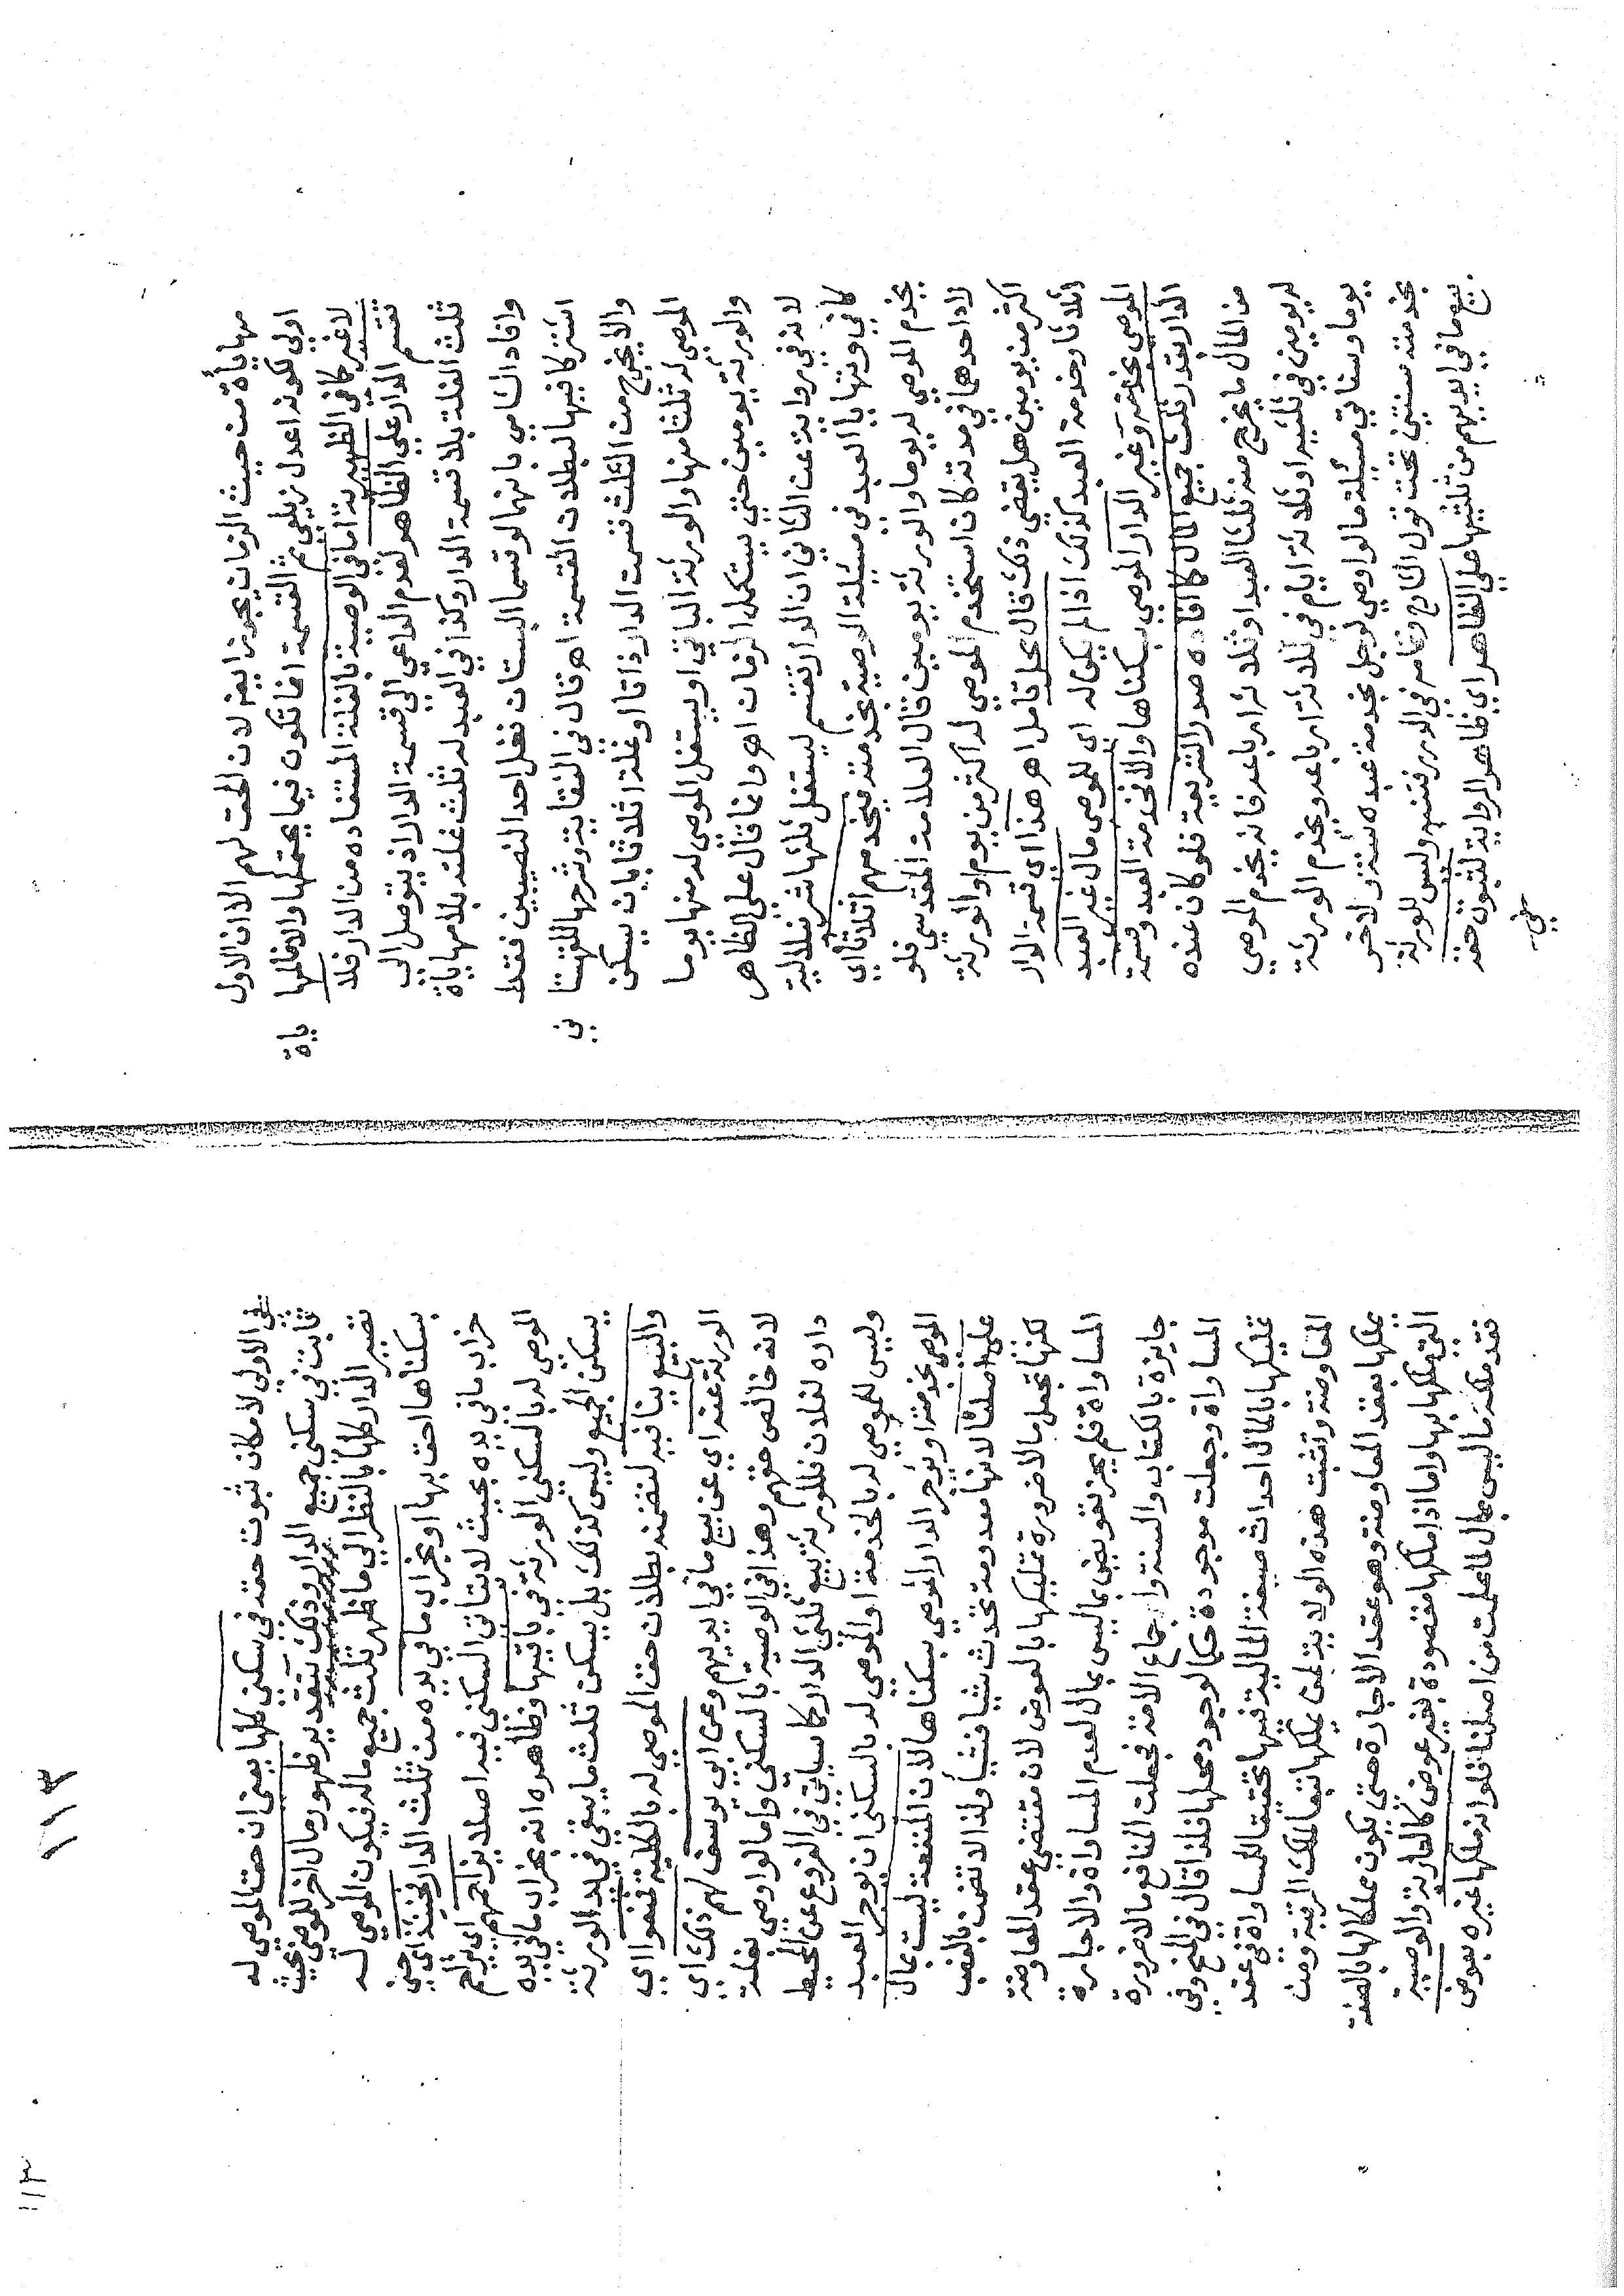 مهايأة من حيث الزمان يجوز ايضا لان الحق لهم الا ان الاول
اولي لكونه اعدل زيلعي ثم القسمة انما تكون فيما يحتملها والا فالمها
ياة
لا غير كما في الظهيرية اما في الوصية بالغلة المستفاده من الدار فلا
تقسم الدار علي الظاهر لعدم الداعي الي قسمة الدار اذ يتوصل الي
ثلث الغلة بلا قسمة الدار وكذا في العبد له ثلث غلته بلا مهاياة
وافاد الشامي بانهما لو قسما البستان فغل احد النصيبين فقط
اشتركا فيها لبطلان القسمة اهـ قال في النقاية وشرحها للقهستا
ني
والا يخرج من الثلث قسمت الدار ذاتا او غلة اثلاثا بان يسكن
الموصي له ثلثا منها والورثة الباقي او يستغل الموصي له منها يوما
والورثة يومين حتي يستكمل الزمان اهـ وانما قال علي الظاهر
لانه في رواية عن الثاني ان الدار تقسم ليستغل ثلثها شرنبلالية
كما في وتهايأ العبد في مسئلة الوصية بخدمته فيخدمهم اثلاثا اي
يخدم الموصي له يوما والورثة يومين قال العلامة المقدسي فلو
زاد احدهما في مدته كان استخدم الموصي له اكثر من يوم او الورثة
اكثر من يومين هل يقضي ذلك قال محل تامل اهـ هذا اي قسمة الدار
اثلاثا وخدمة العبد كذلك اذا لم يكن له اي للموصي مال غير العبد
الموصي بخدمته وغير الدار الموصي بسكناها والا فخدمة العبد وقسمة
الدار بقدر ثلث جميع المال كما افاده صدر الشريعة فلو كان عنده
من المال ما يخرج منه ثلثا العبد او ثلاثة ارباعه فانه يخدم الموصي
له يومين في ثلثيه او ثلاثة ايام في ثلاثة ارباعه ويخدم الورثة
يوما وستاتي مسئلة ما لو اوصي لرجل بخدمة عبده سنة ولاخر
بخدمته سنتين تحت قول الشارح وتمامه في الدرر فتنبه وليس للورثة
بيع ما في ايديهم من ثلثيها علي الظاهر اي ظاهر الرواية لثبوت حقه
١١٣
113
في الاولي لامكان ثبوت حقه في سكني كلها يعني ان حق الموصي له
ثابت في سكني جميع الدار وذلك بتقدير ظهور مال اخر للموصي بحيث
تصير الدار كلها بالنظر الي ما ظهر ثلث جميع ماله فيكون الموصي له
بسكناها احق بها او بخراب ما في يده من ثلث الدار فحينئذ اي حين
خراب ما في يده بحيث لا يتاتي السكني فيه اصلا يزاحمهم اي يزاحم
الموصي له بالسكني الورثة في باقيها وظاهره انه بخراب ما في يده
يسكن الجميع وليس كذلك بل يسكن ثلث ما يبقي في يد الورثة
والبيع ينافيه لتضمنه بطلان حق الموصي له بالكلية فمنعوا اي
الورثة عنه اي عن بيع ما في ايديهم وعن ابي يوسف لهم ذلك اي
لانه خالص حقهم وهذا في الوصية بالسكني واما لو اوصي بغلة
داره لفلان فللورثة بيع ثلثي الدار كما سياتي في الفروع عن المحيط
وليس للموصي له بالخدمة او الموصي له بالسكني ان يوجر العبد
الموصي بخدمته او يؤجر الدار الموصي بسكناها لان المنفعة ليست بمال
علي اصلنا لانها معدومة تحدث شيئا فشيئا ولذا لا تضمن بالغصب
لكنها تجعل مالا ضرورة تمليكها بالعوض لان مقتضي عقد المعاوضة
المساواة فلم يجز تعويض ما ليس بمال لعدم المساواة والاجارة
جايزة بالكتاب والسنة واجماع الامة فجعلت المنافع مالا ضرورة
المساواة وجعلت موجودة حكما لوجود محلها فلذا قال في المنح وفي
تمليكها بالمال احداث صيغة المالية فيها تحقيقا للمساواة في عقد
المعاوضة وتثبت هذه الولاية لمن يملكها تبعا لملك الرقبة ومن
يملكها بعقد المعاوضة وهو عقد الاجارة حتي يكون مملكا لها بالصفة
التي ملكها بها واما اذا ملكها مقصودة بغير عوض كالعارية والوصية
فقد ملك ما ليس بمال لما علمت من اصلنا فلو انه ملكها غيره بعوض